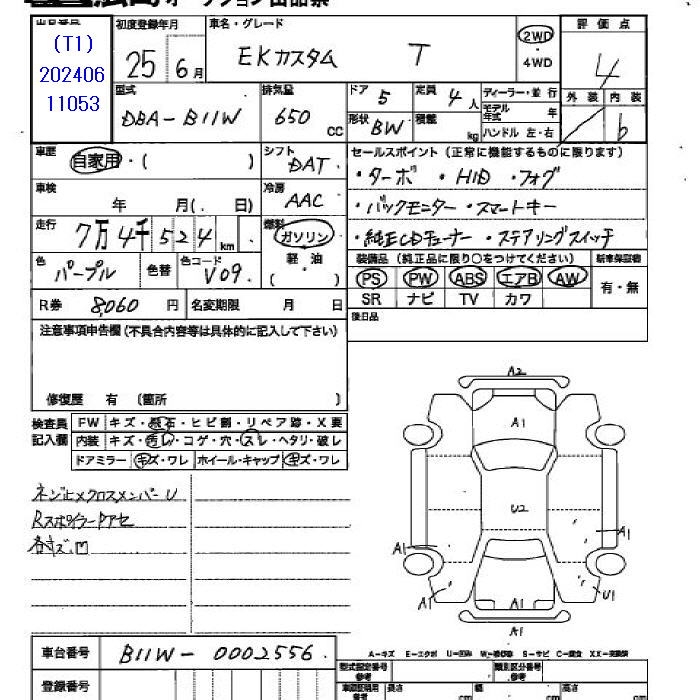 出品番号
(T1)
202406
11053
初度登録年月
25 6月
車名・グレード
EKカスタム T
2WD
4WD
評価点
4
外装 内装
b
型式
DBA-B11W
排気量
650 CC
ドア 5
形状 BW
定員 4 人
積載 kg
ディーラー・並行
モデル年式 年
ハンドル 左・右
車歴
自家用・( )
シフト
DAT
セールスポイント(正常に機能するものに限ります)
・ターボ ・HID ・フォグ
・バックモニター ・スマートキー
・純正CDチューナー ・ステアリングスイッチ
車検
年 月(. 日)
冷房
AAC
走行
7万4千524km
燃料
ガソリン
軽油
( )
色
パープル
色替
色コード
V09.
装備品(純正品に限り○をつけてください)
新車保証書
PS PW ABS エアB AW
SR ナビ TV カワ
有・無
R券 8,060 円
名変期限 月 日
後日品
注意事項申告欄(不具合内容等は具体的に記入して下さい)
修復歴 有 (箇所 )
検査員
記入欄
FW キズ・飛石・ヒビ割・リペア跡・X要
内装 キズ・汚レ・コゲ・穴・スレ・ヘタリ・破レ
ドアミラー キズ・ワレ ホイール・キャップ キズ・ワレ
ネジ止メクロスメンバーU
Rスポイラークアセ
各キズ、凹
A2
A1
U2
A1
A1
A1
A1
U1
A1
車台番号 B11W-0002556.
登録番号
A-キズ E-エクボ U-凹み W-補修跡 S-サビ C-腐食 XX-交換済
型式指定番号
類別区分番号
車庫証明用参考
長さ cm
幅 cm
高さ cm